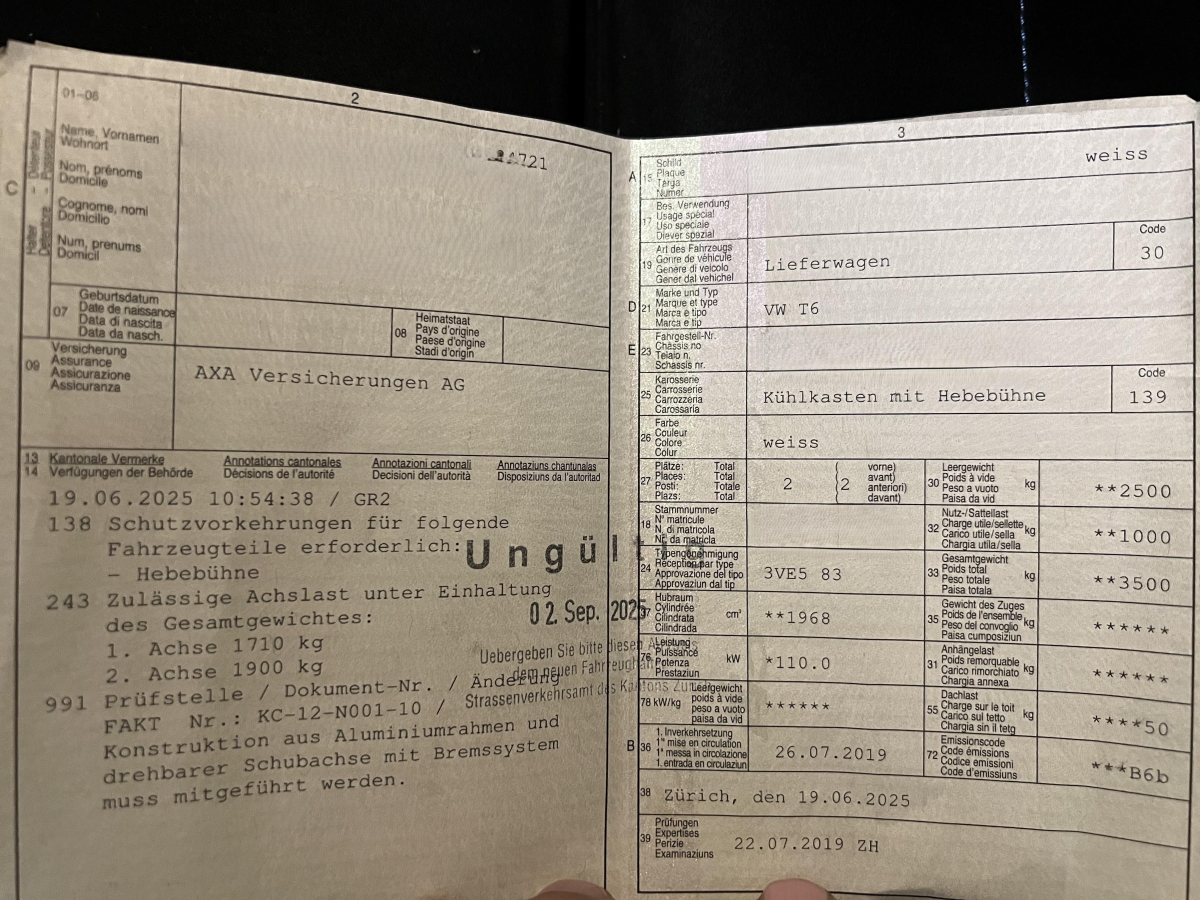 2
01-06
Name, Vornamen
Wohnort
Nom, prénoms
Domicile
C
Cognome, nomi
Domicilio
Num, prenums
Domicil
721
07 Geburtsdatum
Date de naissance
Data di nascita
Data da nasch.
08 Heimatstaat
Pays d'origine
Paese d'origine
Stadi d'origin
09 Versicherung
Assurance
Assicurazione
Assicuranza
AXA Versicherungen AG
13 Kantonale Vermerke Annotations cantonales Annotazioni cantonali Annotaziuns chantunalas
14 Verfügungen der Behörde Décisions de l'autorité Decisioni dell'autorità Disposiziuns da l'autoritad
19.06.2025 10:54:38 / GR2
138 Schutzvorkehrungen für folgende
Fahrzeugteile erforderlich:
– Hebebühne
243 Zulässige Achslast unter Einhaltung
des Gesamtgewichtes:
1. Achse 1710 kg
2. Achse 1900 kg
991 Prüfstelle / Dokument-Nr. / Änderung
FAKT Nr.: KC-12-N001-10 /
Konstruktion aus Aluminiumrahmen und
drehbarer Schubachse mit Bremssystem
muss mitgeführt werden.
Ungültig
02. Sep. 2025
Uebergeben Sie bitte diesen
dem neuen Fahrzeughalter
Strassenverkehrsamt des Kantons Zürich
3
A 15 Schild
Plaque
Targa
Numer
weiss
17 Bes. Verwendung
Usage spécial
Uso speciale
Diever spezial
19 Art des Fahrzeugs
Genre de véhicule
Genere di veicolo
Gener dal vehichel
Lieferwagen
Code
30
D 21 Marke und Typ
Marque et type
Marca e tipo
Marca e tip
VW T6
E 23 Fahrgestell-Nr.
Châssis no
Telaio n.
Schassis nr.
25 Karosserie
Carrosserie
Carrozzeria
Carossaria
Kühlkasten mit Hebebühne
Code
139
26 Farbe
Couleur
Colore
Colur
weiss
27 Plätze: Total
Places: Total
Posti: Totale
Plazs: Total
2 (2 vorne)
avant)
anteriori)
davant)
30 Leergewicht
Poids à vide
Peso a vuoto
Paisa da vid
kg
**2500
18 Stammnummer
N° matricule
N. di matricola
Nr. da matricla
32 Nutz-/Sattellast
Charge utile/sellette
Carico utile/sella
Chargia utila/sella
kg
**1000
24 Typengenehmigung
Réception par type
Approvazione del tipo
Approvaziun dal tip
3VE5 83
33 Gesamtgewicht
Poids total
Peso totale
Paisa totala
kg
**3500
37 Hubraum
Cylindrée
Cilindrata
Cilindrada
cm³
**1968
35 Gewicht des Zuges
Poids de l'ensemble
Peso del convoglio
Paisa cumposiziun
kg
******
76 Leistung
Puissance
Potenza
Prestaziun
kW
*110.0
31 Anhängelast
Poids remorquable
Carico rimorchiato
Chargia annexa
kg
******
78 kW/kg Leergewicht
poids à vide
peso a vuoto
paisa da vid
******
55 Dachlast
Charge sur le toit
Carico sul tetto
Chargia sin il tetg
kg
****50
B 36 1. Inverkehrsetzung
1re mise en circulation
1a messa in circolazione
1. entrada en circulaziun
26.07.2019
72 Emissionscode
Code émissions
Codice emissioni
Code d'emissiuns
***B6b
38 Zürich, den 19.06.2025
39 Prüfungen
Expertises
Perizie
Examinaziuns
22.07.2019 ZH